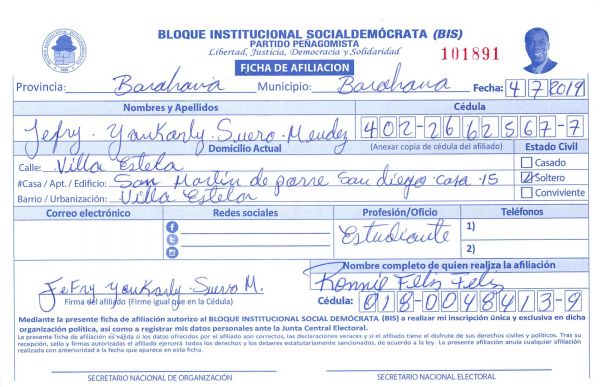 BLOQUE INSTITUCIONAL SOCIALDEMÓCRATA (BIS)
PARTIDO PEÑAGOMISTA
Libertad, Justicia, Democracia y Solidaridad
101891
FICHA DE AFILIACION
Provincia: Barahona Municipio: Barahona Fecha: 4/7/2019
Nombres y Apellidos Cédula
Jefry Yankarly Suero Mendez 402-2662567-7
Domicilio Actual (Anexar copia de cédula del afiliado) Estado Civil
Calle: Villa Estela Casado
#Casa / Apt. / Edificio: San Martin de porre San diego casa 15 Soltero
Barrio / Urbanización: Villa Estela Conviviente
Correo electrónico Redes sociales Profesión/Oficio Teléfonos
Estudiante 1)
2)
Nombre completo de quien realiza la afiliación
JeFry Yankarly Suero M. Ronnie Feliz Feliz
Firma del afiliado (Firme igual que en la Cédula) Cédula: 018-0048413-9
Mediante la presente ficha de afiliación autorizo al BLOQUE INSTITUCIONAL SOCIAL DEMÓCRATA (BIS) a realizar mi inscripción única y exclusiva en dicha
organización política, así como a registrar mis datos personales ante la Junta Central Electoral.
La presente ficha de afiliación es válida si los datos ofrecidos por el afiliado son correctos, las declaraciones veraces y si el afiliado tiene el disfrute de sus derechos civiles y políticos. Tras su
recepción, sello y firmas autorizadas el afiliado ejercerá todos los derechos y los deberes estatutariamente sancionados, de acuerdo a la ley. La presente afiliación anula cualquier afiliación
realizada con anterioridad a la fecha que aparece en esta ficha.
SECRETARIO NACIONAL DE ORGANIZACIÓN SECRETARIO NACIONAL ELECTORAL